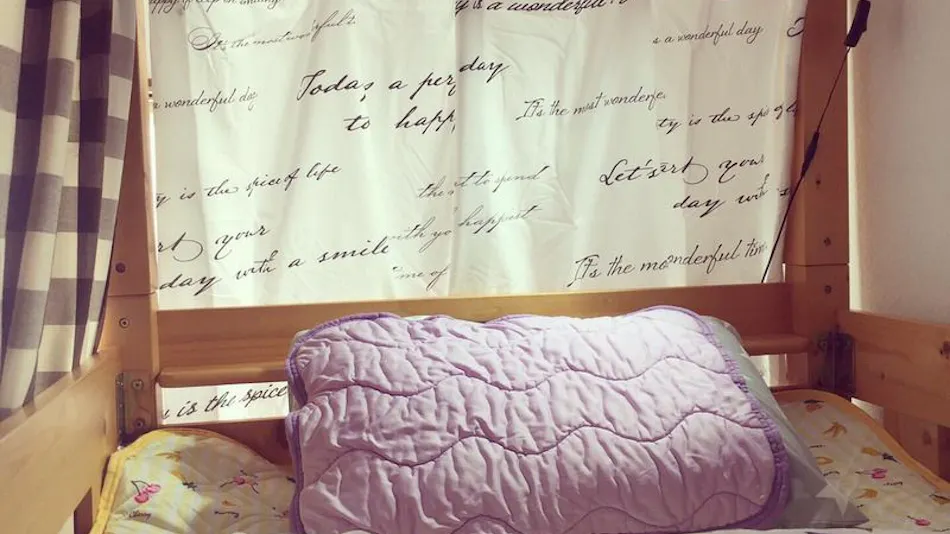 happy
y is a wonderful
It's the most wonderful
s a wonderful day
Today a per day
to happ
a wonderful da
It's the most wonderfe
ty is the sp
y is the spice of life
the t to spend
Let's rt your
day with
rt your
day with a smile
with yo happiest
ime of
It's the mo nderful tim
is the spice